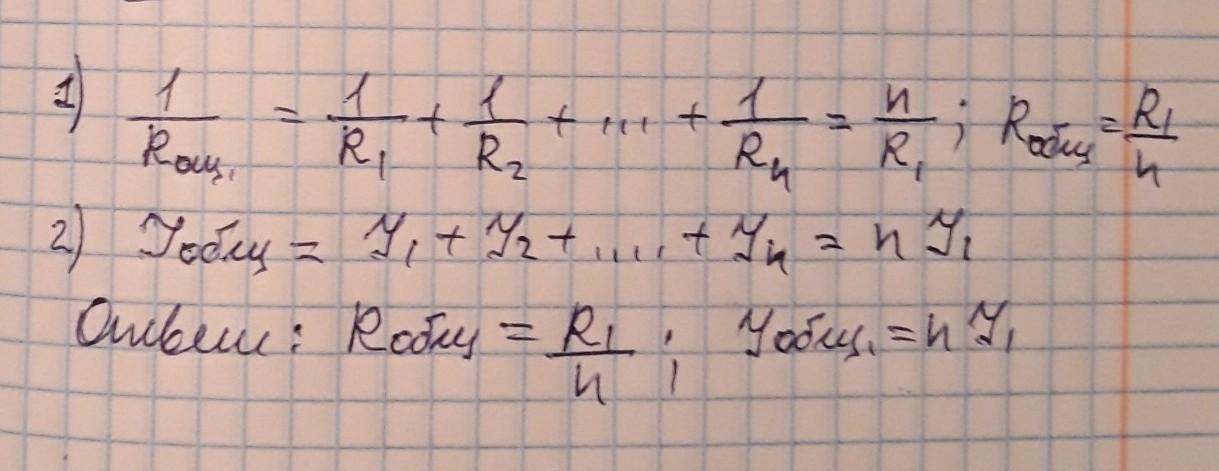 1) 1/Rощ. = 1/R₁ + 1/R₂ + ... + 1/Rₙ = n/R₁ ; Rобщ = R₁/n
2) Jобщ = J₁ + J₂ + .... + Jₙ = n J₁
Ответ: Rобщ = R₁/n ; Jобщ. = n J₁